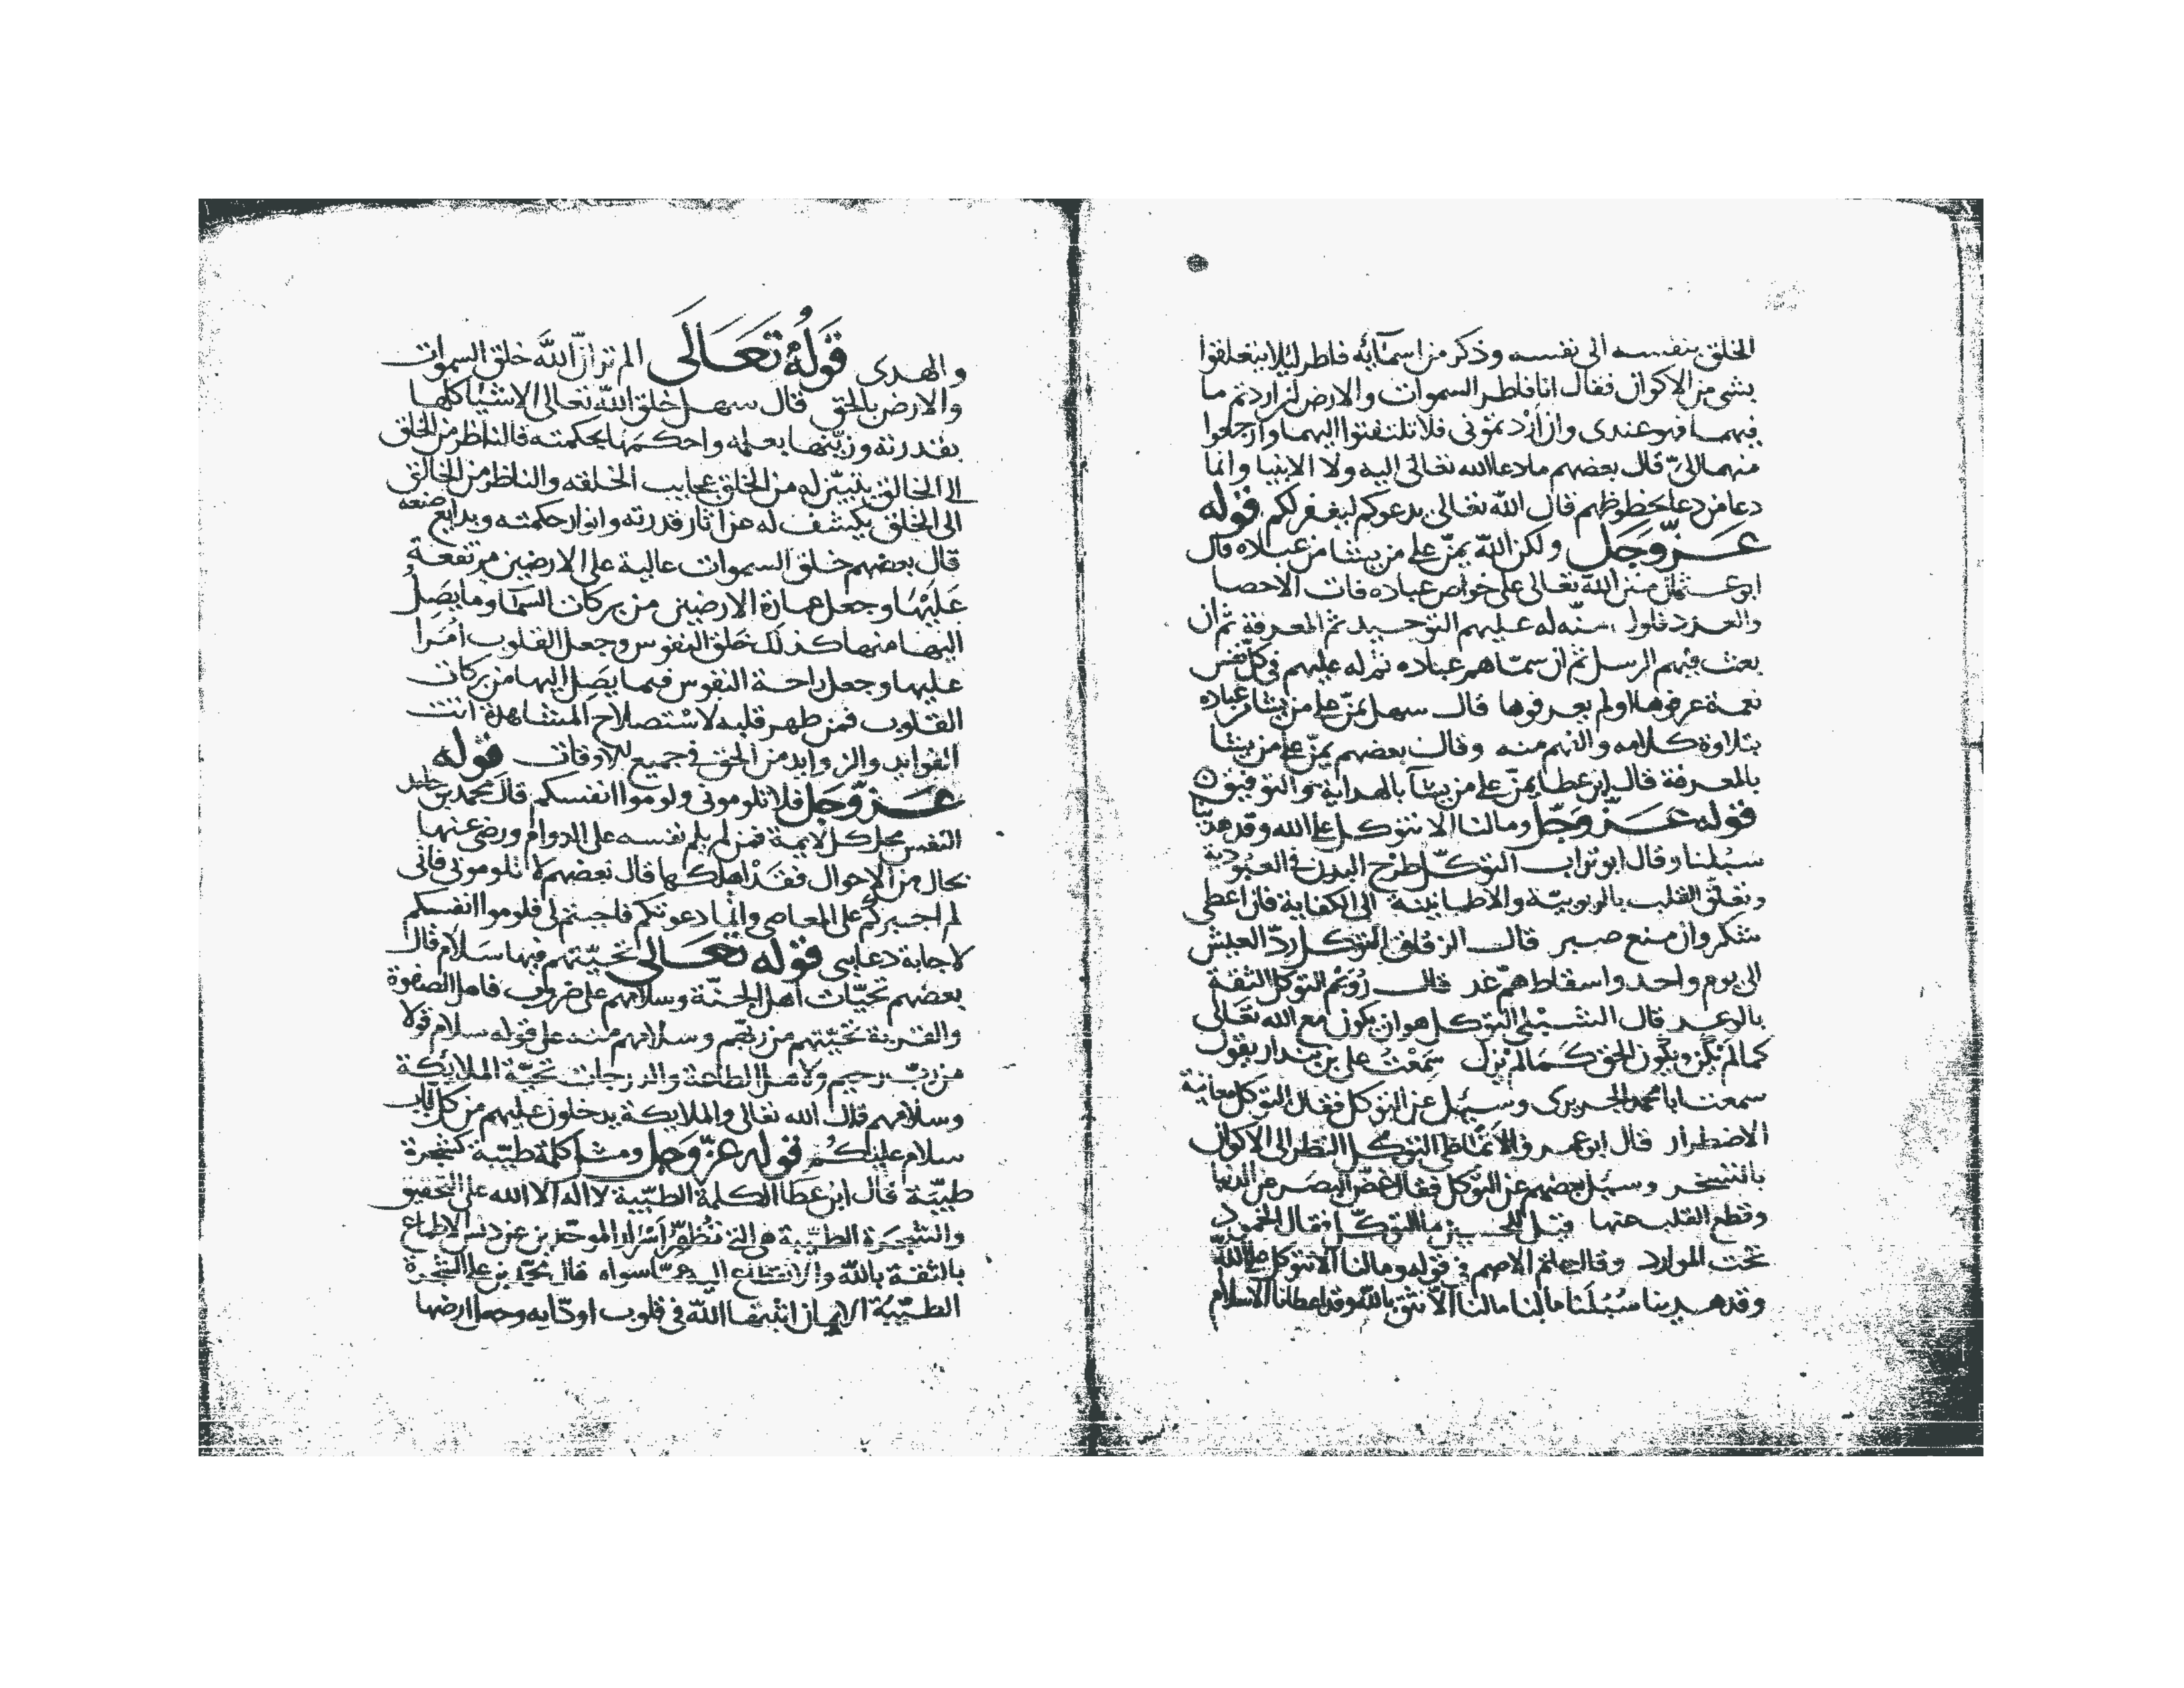 الخلق بنفسه الى نفسه وذكر من اسمائه فاطر ليلا يتعلقوا
بشى من الاكوان فقال انا فاطر السموات والارض ان اردتم ما
فيهما فهو عندى وان اردتمونى فلا تلتفتوا اليهما وارجعوا
منهما الىّ قال بعضهم ما دعا الله تعالى اليه ولا الانبيا وانما
دعا من دعا بحظوظهم قال الله تعالى يدعوكم ليغفر لكم قوله
عزّ وجل ولكن الله يمنّ على من يشا من عباده قال
ابو عثمان منن الله تعالى على خواص عباده فات الاحصا
والعدد فاول منّه له عليهم التوحيد ثم المعرفة ثم ان
بعث فيهم الرسل ثم ان سمّاهم عباده ثم له عليهم فى كل نفس
نعمة عرفوها او لم يعرفوها قال سهل يمنّ على من يشا من عباده
بتلاوة كلامه والفهم منه وقال بعضهم يمنّ على من يشا
بالمعرفة قال ابن عطا يمنّ على من يشآ بالهداية والتوفيق
قوله عزّ وجلّ وما لنا الا نتوكل على الله وقد هدينا
سبلنا وقال ابو تراب التوكّل طرح البدن فى العبودية
وتعلّق القلب بالربوبيّة والاطمانينة الى الكفاية فان اعطى
شكر وان منع صبر قال الزقاق التوكل ردّ العيش
الى يوم واحد واسقاط همّ غد قال رُوَيْم التوكل الثقة
بالوعد قال الشبْلى التوكل هو ان يكون مع الله تعالى
كما لم تكن ويكون الحق كما لم يزل سمعْتُ على بن بندار يقول
سمعت ابا محمد الجريرى وسيُل عن التوكل فقال التوكل معاينة
الاضطرار قال ابو عمرو الانماطى التوكل النظر الى الاكوان
بالتسخر وسيُل بعضهم عن التوكل فقال غضّ البصر عن الدنيا
وقطع القلب عنها قيل للحسين ما التوكّل فقال الخمود
تحت الموارد وقال حاتم الاصم فى قوله وما لنا الا نتوكل على الله
وقد هدينا سُبُلَنا ما لنا الّا نثق بالله وقد اعطانا الاسلام
والهدى قَولُهُ تَعَالَى الم تر انّ اللّه خلق السموات
والارض بالحق قال سهل خلق اللّه تعالى الاشيا كلها
بقدرته وزيّنها بعلمه واحكمها بحكمته فالناظر من الخلق
الى الخالق يتبيّن له من الخلق عجايب الخلقه والناظر من الخالق
الى الخلق يكشف له عن اثار قدرته وانوار حكمته وبدايع صنعه
قال بعضهم خلق السموات عالية على الارضين مرتفعة
عَلَيْها وجعل عمارة الارضين من بركات السمآ وما يصل
اليها منها كذلك خلق النفوس وجعل القلوب أمرا
عليها وجعل راحة النفوس فيما يصل اليها من بركات
القلوب فمن طهر قلبه لاستصلاح المشاهدة اتت
الفوايد والزوايد من الحق فى جميع الاوقات قوله
عزّ وجل فلا تلومونى ولوموا انفسكم قال محمد بن حامد
النفس محل كل لايمة فمن لم يلم نفسه على الدوام ورضى عنها
بحال من الاحوال فقد اهلكها قال بعضهم لا تلومونى فانى
لم اجبركم على المعاصى وانما دعوتكم فاجبتم لى فلوموا انفسكم
لاجابة دعايى قوله تعالى تحيّتهم فيها سلام قال
بعضهم تحيّات اهل الجنّة وسلامهم على ضروب فاهل الصفوة
والقربة تحيّتهم من ربّهم وسلامهم منه على قوله سلام قولا
من ربّ رحيم ولاهل الطاعة والدرجات تحيّة الملايكة
وسلامهم قال الله تعالى والملايكة يدخلون عليهم من كل باب
سلام عليكم قوله عزّ وجل ومثل كلمة طيّبة كشجرة
طيّبة قال ابن عطا الكلمة الطيّبة لا اله الا الله على التحقيق
والشجرة الطيّبة هى التى تُطهّر أسرار الموحّدين عن دنس الاطماع
بالثقة بالله والانقطاع اليه عمّا سواه قال محمّد بن على الشجرة
الطيّبة الايمان اثبتها اللّه فى قلوب اوليآيه وجعل ارضها